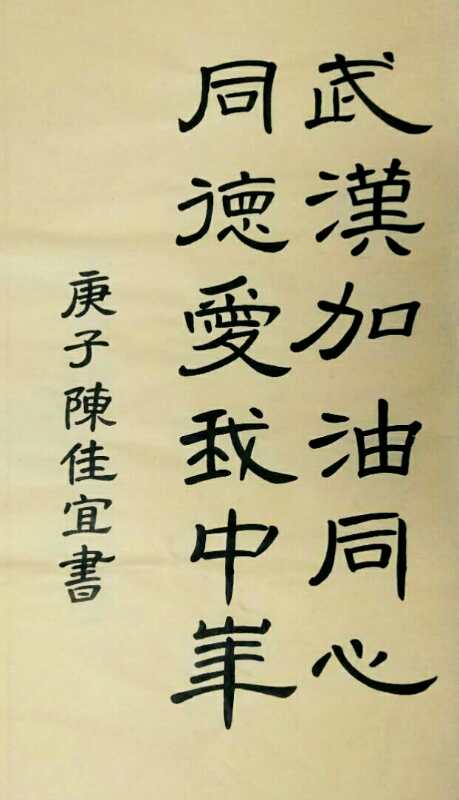 武漢加油同心
同德愛我中華
庚子陳佳宜書